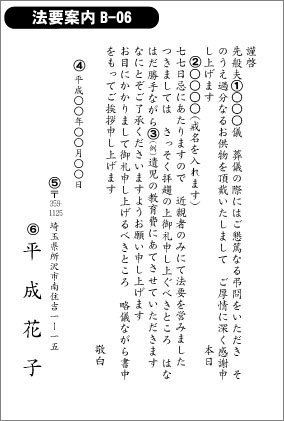 法要案内 B-06
謹啓
先般夫①○○○儀　葬儀の際にはご懇篤なる弔問をいただき　そ
のうえ過分なるお供物を頂戴いたしまして　ご厚情に深く感謝申
し上げます　　　　　　　　　　　　　　　　　　　　　本日
②○○○○(戒名を入れます)
七七日忌にあたりますので　近親者のみにて法要を営みました
つきましては　さっそく拝趨の上御礼申し上ぐべきところ　はな
はだ勝手ながら③(例)遺児の教育費にあてさせていただきます
なにとぞご了承くださいますようお願い申し上げます
お目にかかりまして御礼申し上げるべきところ　略儀ながら書中
をもってご挨拶申し上げます　　　　　　　　　　　敬白
④平成○○年○○月○○日
⑤〒359-1125　埼玉県所沢市南住吉一ー一五
⑥平成花子